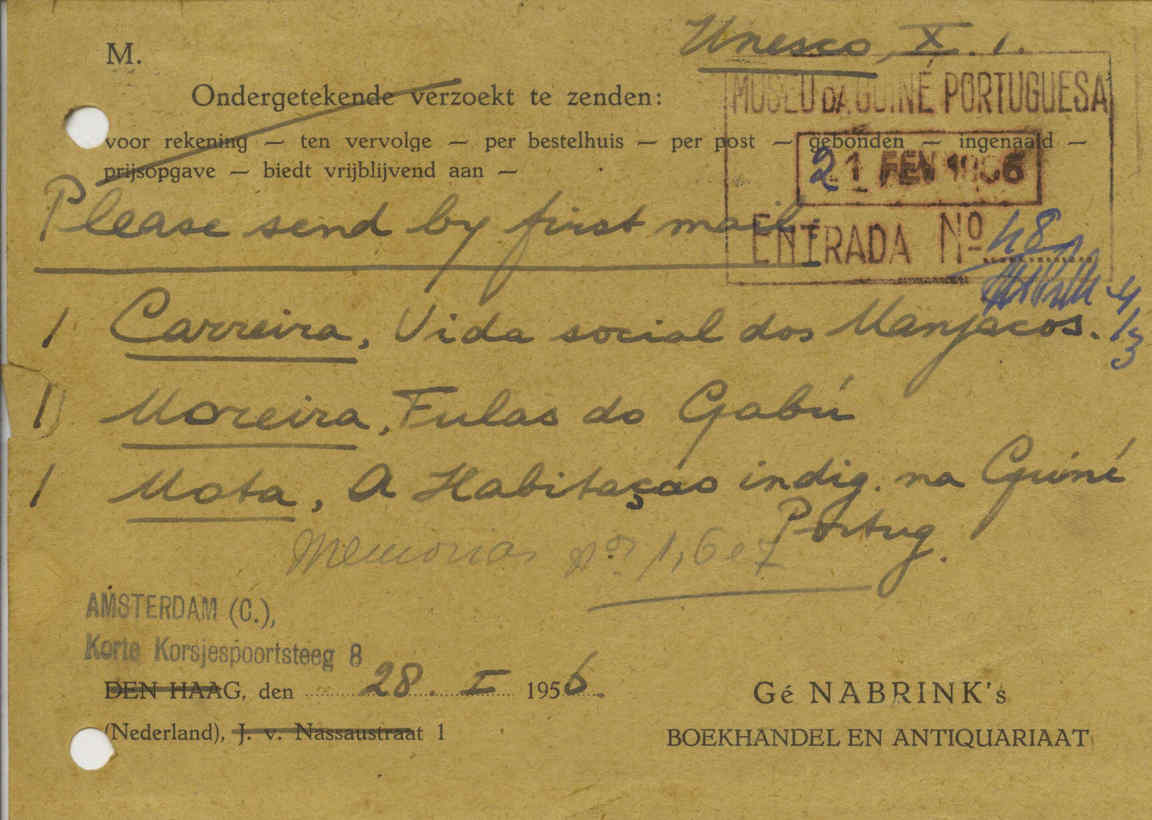 M.
Unesco, X. 1.
Ondergetekende verzoekt te zenden:
MUSEU DA GUINÉ PORTUGUESA
voor rekening — ten vervolge — per bestelhuis — per post — gebonden — ingenaaid —
prijsopgave — biedt vrijblijvend aan —
21 FEV 1956
Please send by first mail:
ENTRADA Nº 48
4/3
1 Carreira, Vida social dos Manjacos.
1) Moreira, Fulas do Gabú
1 Mota, A Habitaçao indig. na Guiné
Portug.
Memorias nos 1, 6 e 7
AMSTERDAM (C.),
Korte Korsjespoortsteeg 8
DEN HAAG, den 28. I 1956.
(Nederland), J. v. Nassaustraat 1
Gé NABRINK's
BOEKHANDEL EN ANTIQUARIAAT